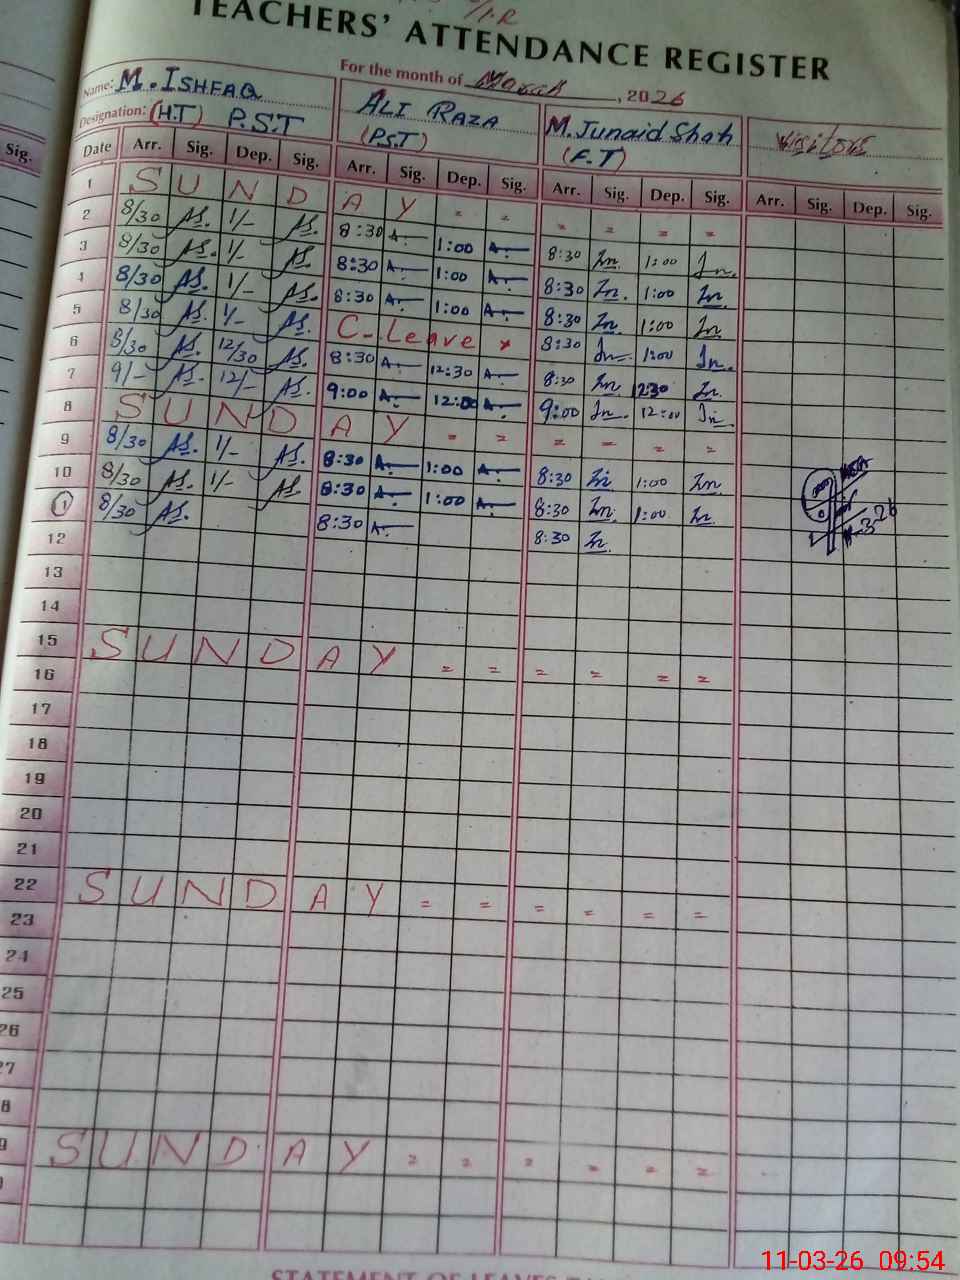 TEACHERS' ATTENDANCE REGISTER
For the month of March, 2026
Name: M. ISHFAQ ALI RAZA M. Junaid Shah Visitors
Designation: (H.T) P.S.T (PST) (F.T)
Sig. Date Arr. Sig. Dep. Sig. Arr. Sig. Dep. Sig. Arr. Sig. Dep. Sig. Arr. Sig. Dep. Sig.
1 S U N D A Y = = = = = =
2 8/30 1/- 8:30 A. 1:00 A. 8:30 Jn. 1:00 Jn.
3 8/30 1/- 8:30 A. 1:00 A. 8:30 Jn. 1:00 Jn.
4 8/30 1/- 8:30 A. 1:00 A. 8:30 Jn. 1:00 Jn.
5 8/30 1/- C-Leave × 8:30 Jn. 1:00 Jn.
6 8/30 12/30 8:30 A. 12:30 A. 8:30 Jn. 12:30 Jn.
7 9/- 12/- 9:00 A. 12:00 A. 9:00 Jn. 12:00 Jn.
8 S U N D A Y = = = = = =
9 8/30 1/- 8:30 A. 1:00 A. 8:30 Jn. 1:00 Jn.
10 8/30 1/- 8:30 A. 1:00 A. 8:30 Jn. 1:00 Jn.
11 8/30 8:30 A. 8:30 Jn. 11-3-26
12
13
14
15 S U N D A Y = = = = = =
16
17
18
19
20
21
22 S U N D A Y = = = = = =
23
24
25
26
27
8
9 S U N D A Y = = = = = =
STATEMENT OF LEAVES
11-03-26 09:54